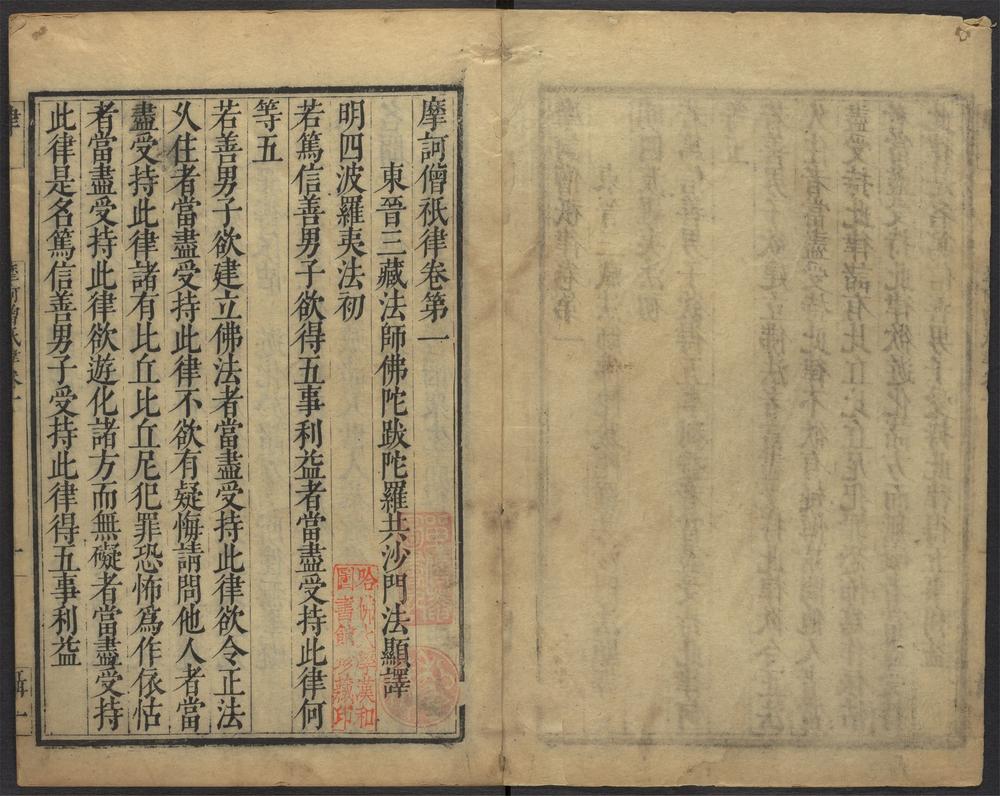 摩訶僧祇律卷第一
東晉三藏法師佛陀跋陀羅共沙門法顯譯
明四波羅夷法初
若篤信善男子欲得五事利益者當盡受持此律何
等五
若善男子欲建立佛法者當盡受持此律欲令正法
久住者當盡受持此律不欲有疑悔請問他人者當
盡受持此律諸有比丘比丘尼犯罪恐怖爲作依怙
者當盡受持此律欲遊化諸方而無礙者當盡受持
此律是名篤信善男子受持此律得五事利益
哈佛大學漢和
圖書館珍藏印